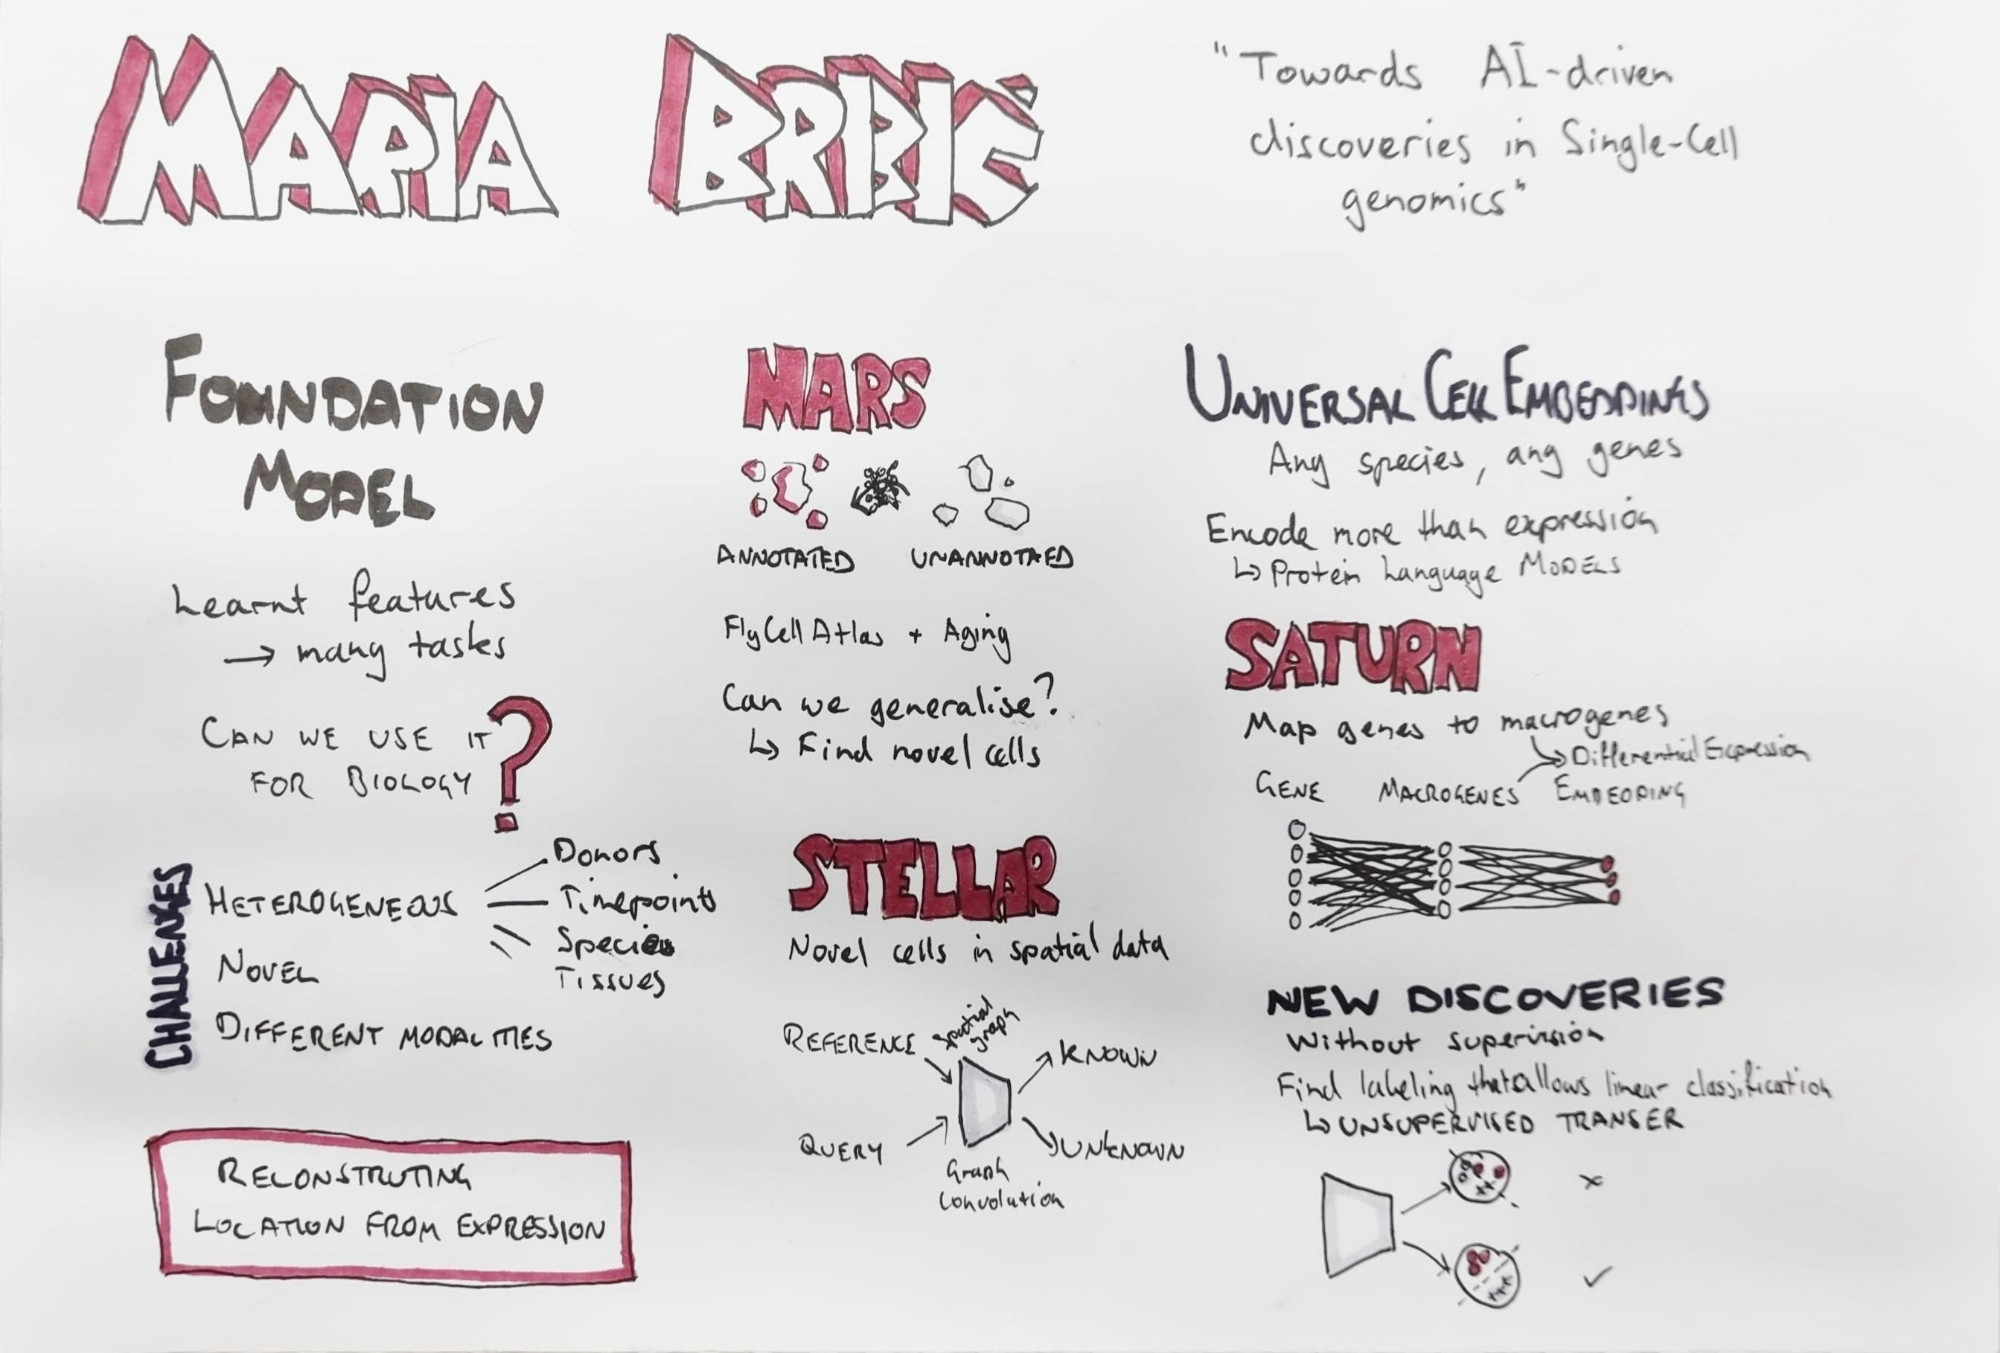 MARIA BRBIĆ
"Towards AI-driven
discoveries in Single-Cell
genomics"
FOUNDATION
MODEL
Learnt features
→ many tasks
CAN WE USE IT
FOR BIOLOGY ?
CHALLENGES
HETEROGENEOUS
Donors
Timepoints
Species
Tissues
NOVEL
DIFFERENT MODALITIES
RECONSTRUTING
LOCATION FROM EXPRESSION
MARS
ANNOTATED UNANNOTAED
FlyCellAtlas + Aging
Can we generalise?
↳ Find novel cells
STELLAR
Novel cells in spatial data
REFERENCE
Spatial
graph
KNOWN
QUERY
UNKNOWN
Graph
Convolution
UNIVERSAL CELL EMBEDDINGS
Any species, any genes
Encode more than expression
↳ Protein Language MODELS
SATURN
Map genes to macrogenes
Differential Expression
GENE MACROGENES EMBEDDING
NEW DISCOVERIES
Without supervision
Find labeling that allows linear classification
↳ UNSUPERVISED TRANSER